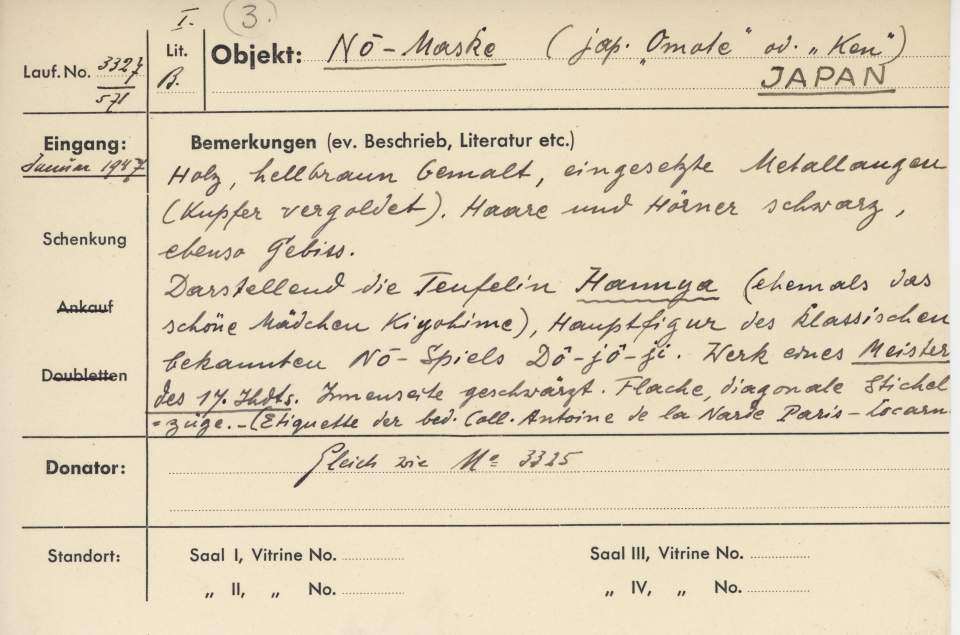 I. 3.
Lauf. No. 3327 / 571
Lit. B.
Objekt: Nō-Maske (jap. "Omote" od. "Ken")
JAPAN
Eingang: Januar 1947
Bemerkungen (ev. Beschrieb, Literatur etc.)
Holz, hellbraun bemalt, eingesetzte Metallaugen
(Kupfer vergoldet). Haare und Hörner schwarz,
ebenso Gebiss.
Darstellend die Teufelin Hannya (ehemals das
schöne Mädchen Kiyohime), Hauptfigur des klassischen
bekannten Nō-Spiels Dō-jō-ji. Werk eines Meister
des 17. Jhdts. Innenseite geschwärzt. Flache, diagonale Stichel
-züge. - (Etiquette der bed. Coll. Antoine de la Narde Paris - Locarn
Schenkung
Ankauf
Doubletten
Donator: Gleich wie No 3325
Standort: Saal I, Vitrine No. Saal III, Vitrine No.
„ II, „ No. „ IV, „ No.